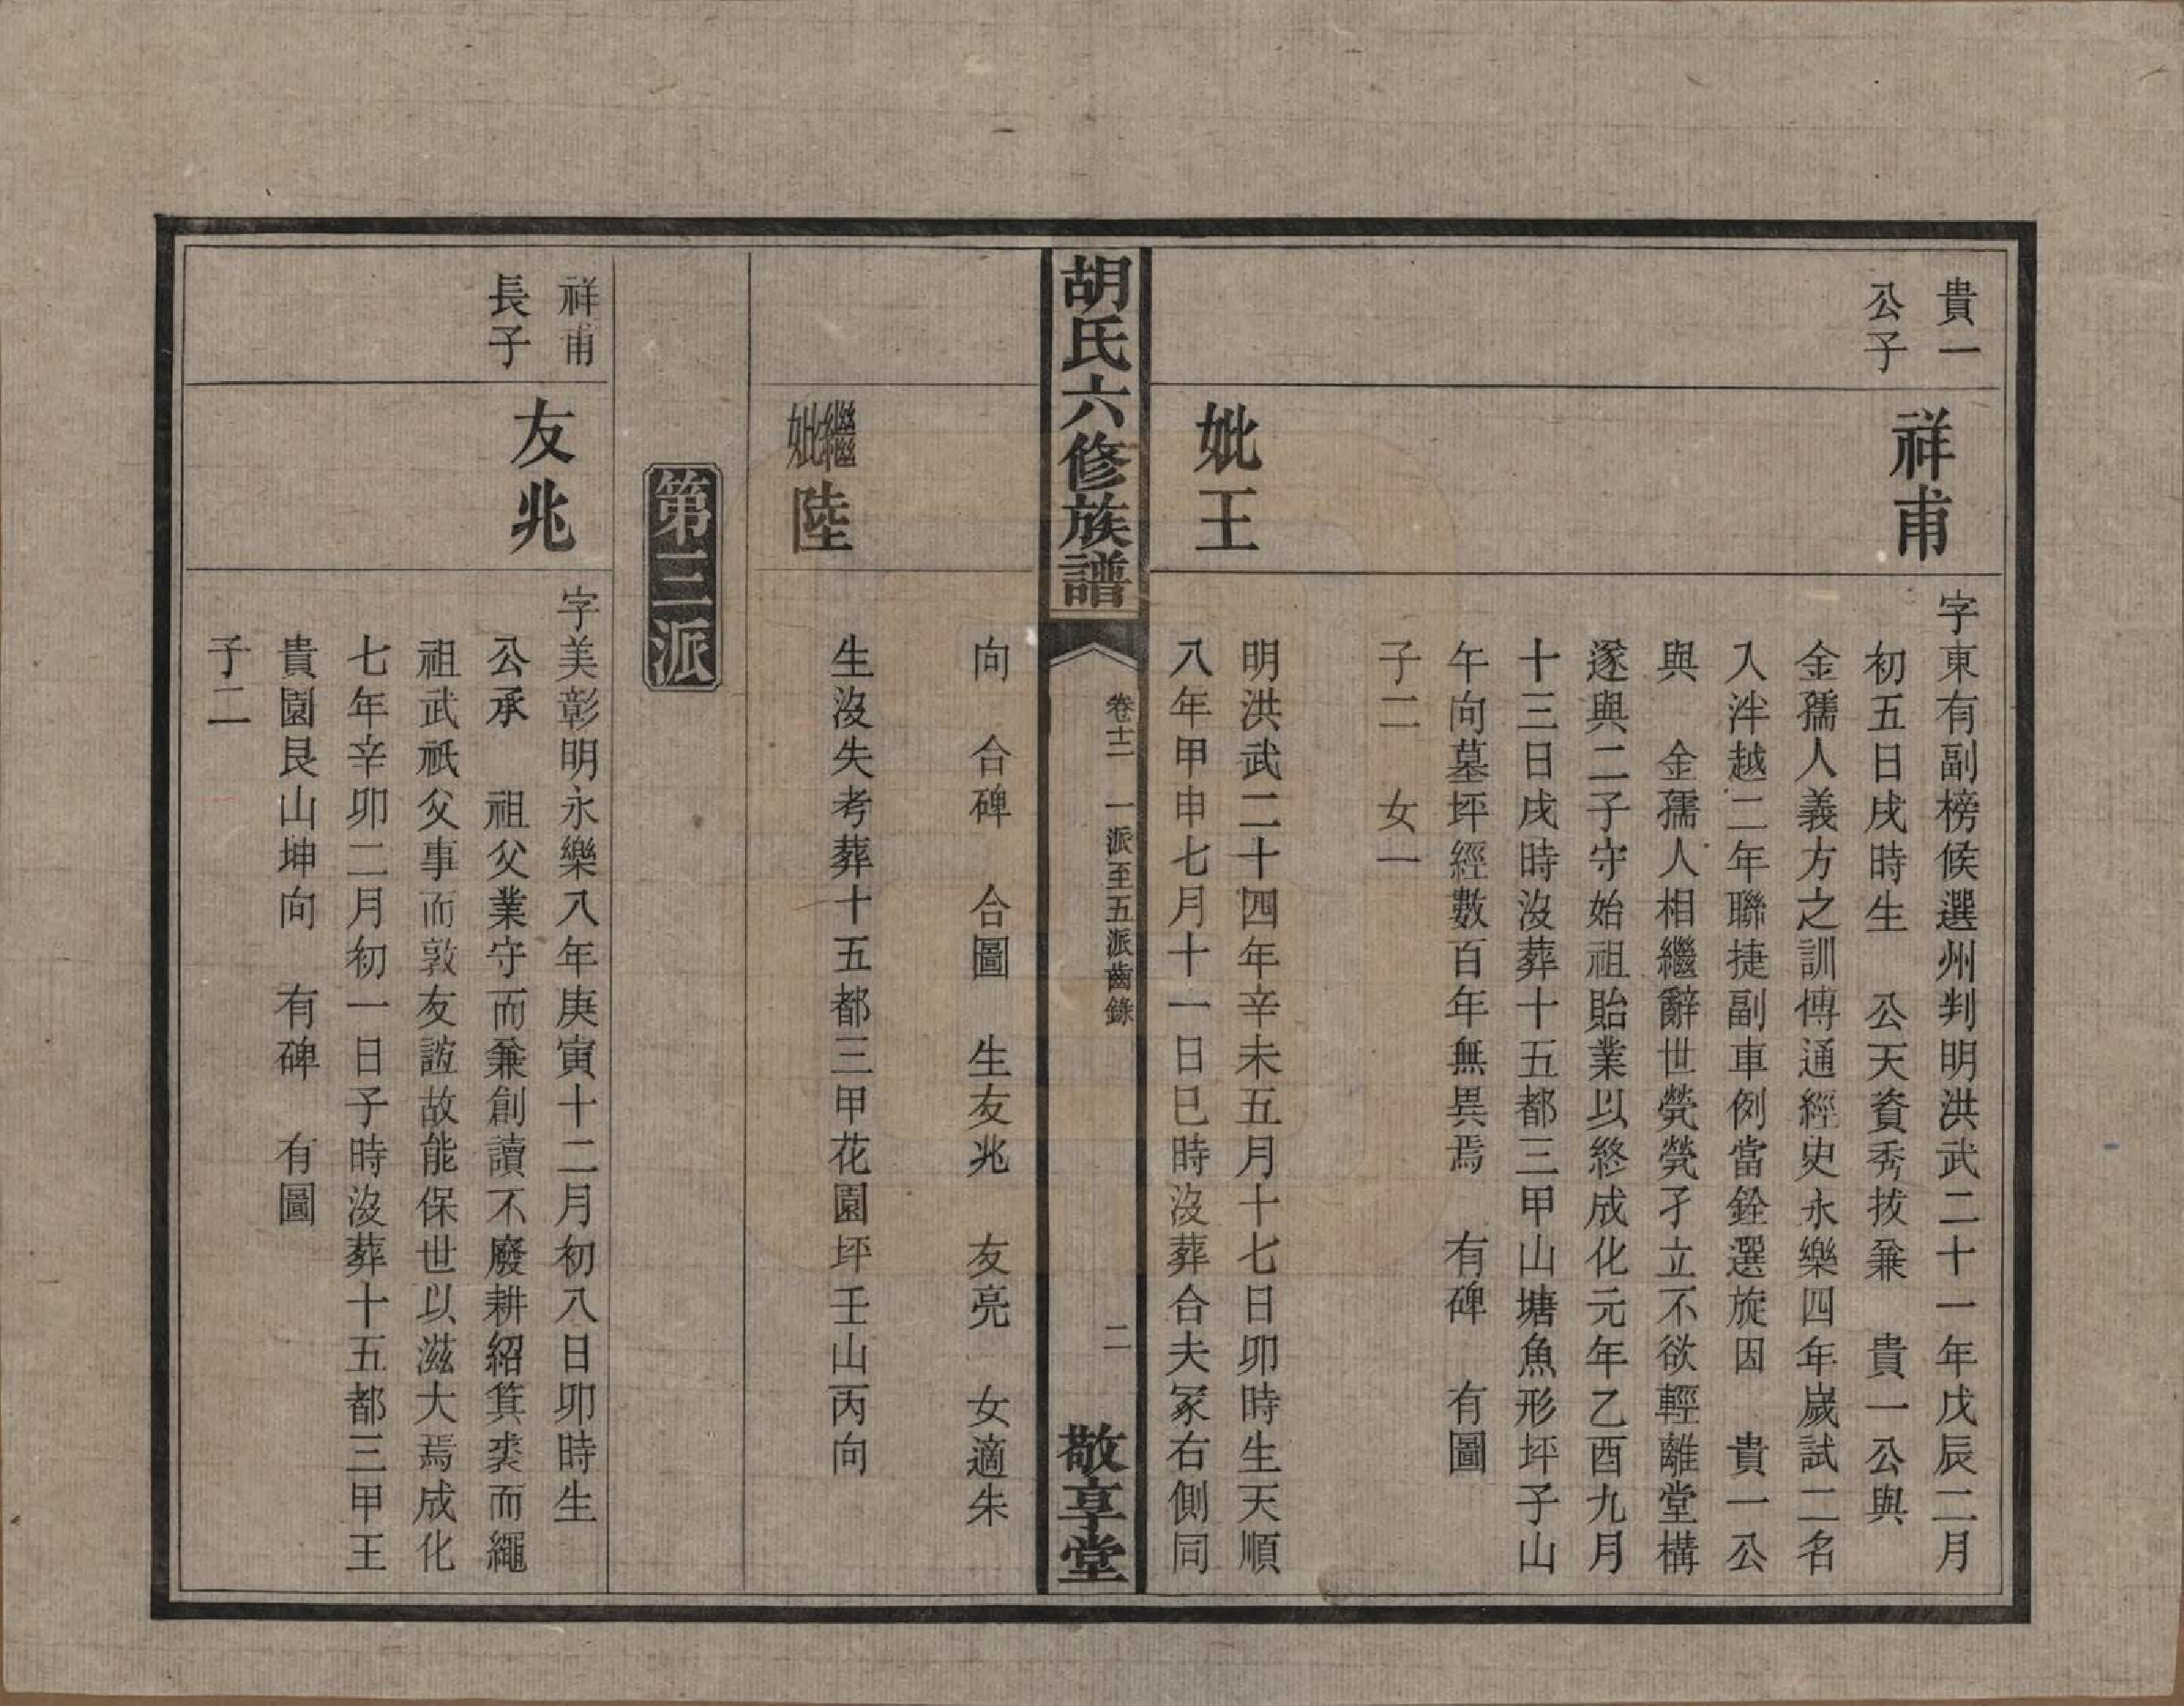 貴一
公子
祥甫
字東有副榜候選州判明洪武二十一年戊辰二月
初五日戌時生　公天資秀拔兼　貴一公與
金孺人義方之訓博通經史永樂四年歲試二名
入泮越二年聯捷副車例當銓選旋因　貴一公
與　金孺人相繼辭世煢煢孑立不欲輕離堂構
遂與二子守始祖貽業以終成化元年乙酉九月
十三日戌時沒葬十五都三甲山塘魚形坪子山
午向墓坪經數百年無異焉　有碑　有圖
子二　女一
妣王
明洪武二十四年辛未五月十七日卯時生天順
八年甲申七月十一日巳時沒葬合夫冢右側同
胡氏六修族譜
卷十二　一派至五派齒錄
二
敬享堂
向　合碑　合圖　生友兆　友亮　女適朱
繼妣陸
生沒失考葬十五都三甲花園坪壬山丙向
第三派
祥甫
長子
友兆
字美彰明永樂八年庚寅十二月初八日卯時生
公承　祖父業守而兼創讀不廢耕紹箕裘而繩
祖武祇父事而敦友誼故能保世以滋大焉成化
七年辛卯二月初一日子時沒葬十五都三甲王
貴園艮山坤向　有碑　有圖
子二